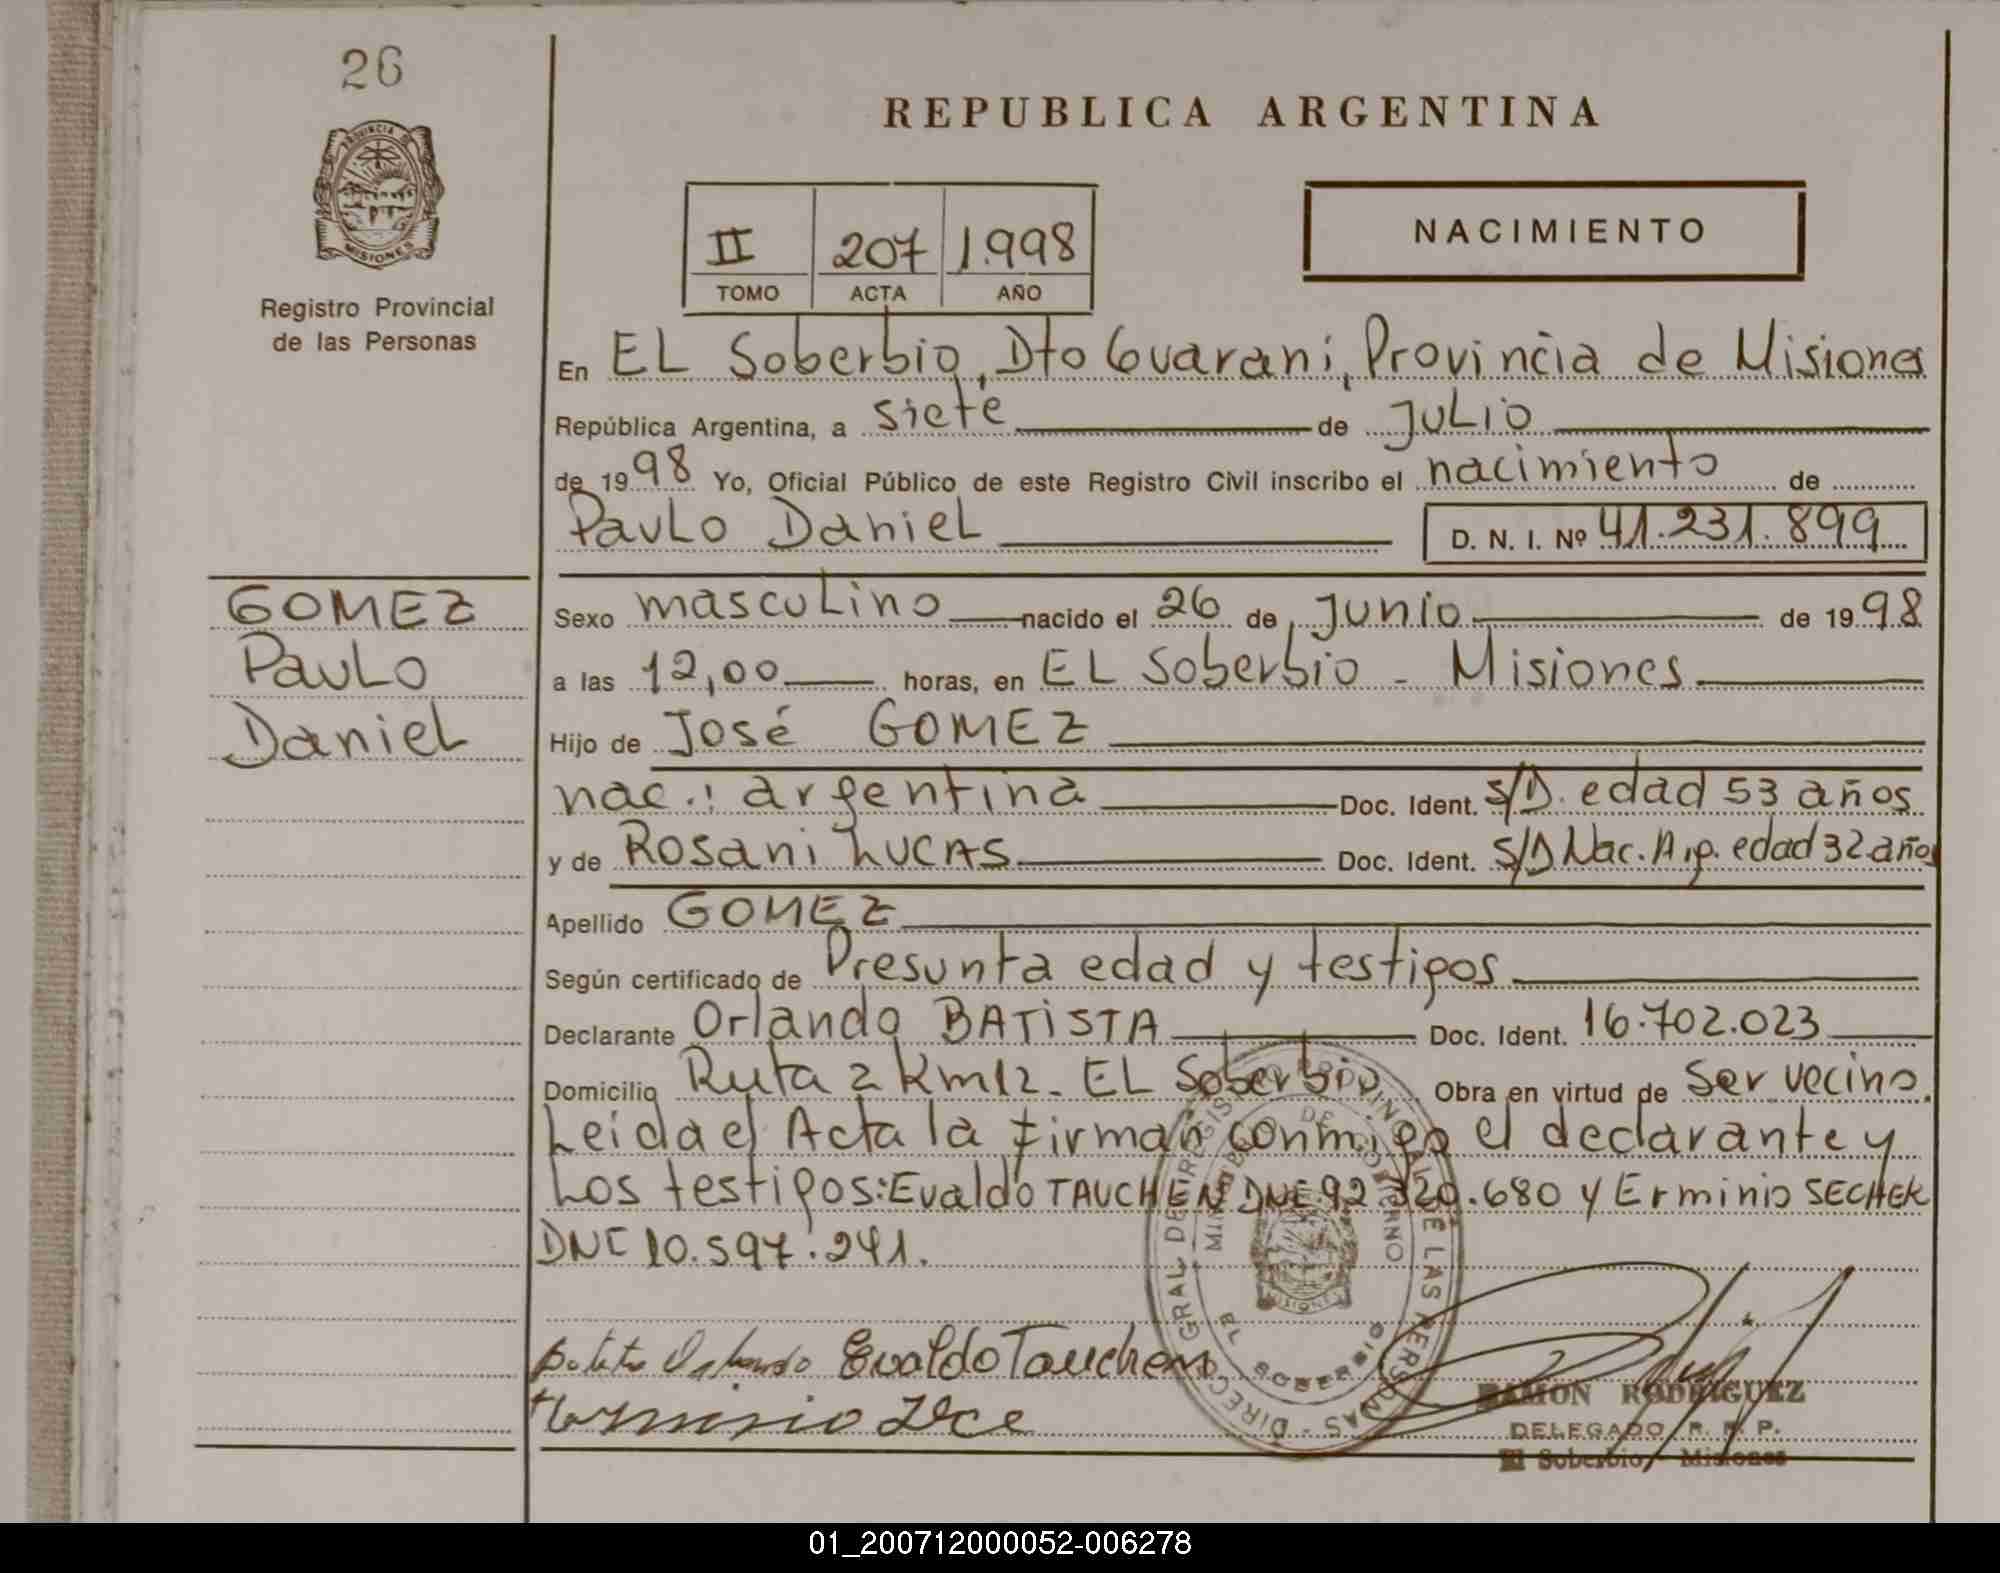 26
PROVINCIA DE
MISIONES
Registro Provincial
de las Personas
REPUBLICA ARGENTINA
II 207 1.998
TOMO ACTA AÑO
NACIMIENTO
En EL Soberbio, Dto Guarani, Provincia de Misiones
República Argentina, a siete de JuLio
de 1998 Yo, Oficial Público de este Registro Civil inscribo el nacimiento de
PauLo DanieL D. N. I. Nº 41.231.899
GOMEZ
PauLo
DanieL
Sexo mascuLino nacido el 26 de Junio de 1998
a las 12,00 horas, en EL Soberbio - Misiones
Hijo de José GOMEZ
nac.: argentina Doc. Ident. S/D. edad 53 años
y de Rosani LUCAS Doc. Ident. S/D Nac. Arg. edad 32 años
Apellido GOMEZ
Según certificado de Presunta edad y testigos
Declarante Orlando BATISTA Doc. Ident. 16.702.023
Domicilio Ruta 2 Km12- EL Soberbio Obra en virtud de Ser vecino.
Leida el Acta la firman conmigo el declarante y
Los testigos: Evaldo TAUCHEN DNI 92.320.680 y Erminio SECHEK
DNI 10.597.241.
Evaldo Tauchen
DIRECC. GRAL. DE REGISTRO PROVINCIAL DE LAS PERSONAS
MINISTERIO DE GOBIERNO
MISIONES
EL SOBERBIO
RAMON RODRIGUEZ
DELEGADO R. P. P.
El Soberbio, Misiones
01_200712000052-006278